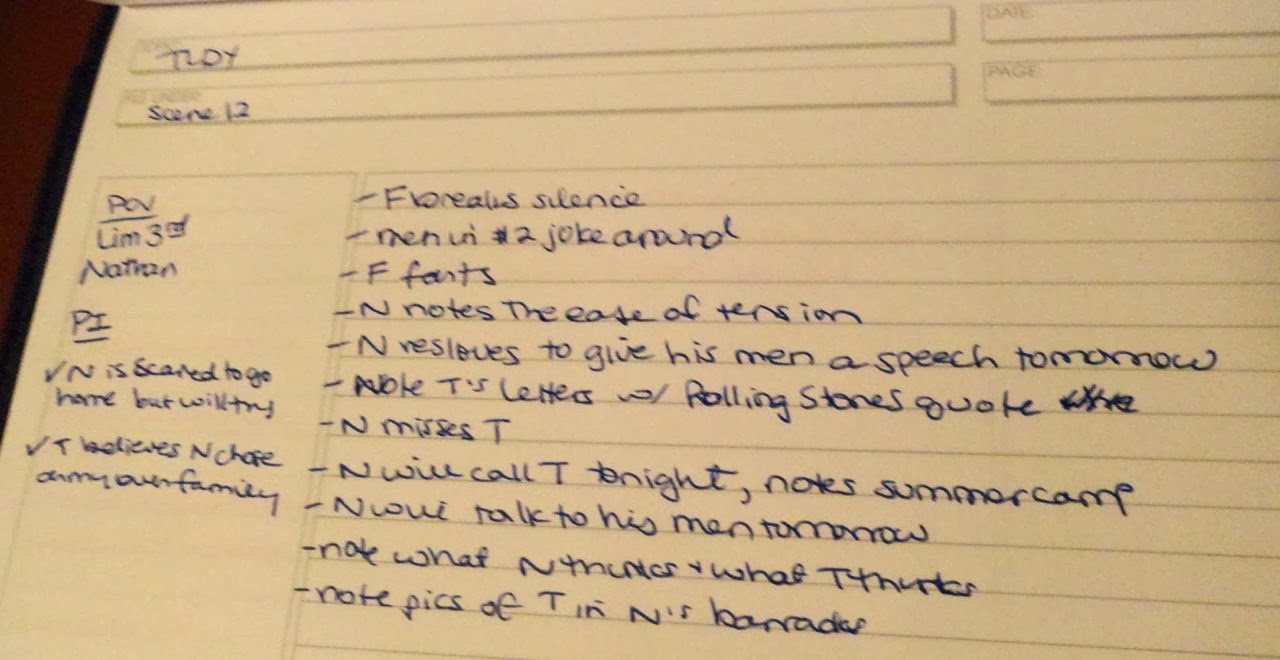 TLDY
Scene 12
DATE
PAGE
POV
Lim 3rd
Nathan
PI
✓N is scared to go
home but will try
✓T believes N chose
army over family
- F breaks silence
- men in #2 joke around
- F farts
- N notes the ease of tension
- N resloves to give his men a speech tomorrow
- Note T's letters w/ Rolling Stones quote
- N misses T
- N will call T tonight, notes summer camp
- N will talk to his men tomorrow
- note what N thinks + what T thinks
- note pics of T in N's barracks